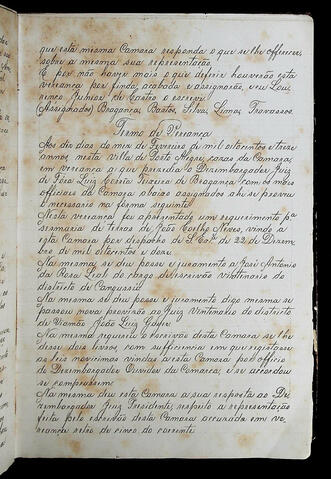 que esta mesma Camara responda o que se lhe offerecer,
sobre a mesma sua representação
E por não haver mais o que deferir houverão esta
vereança por finda, acabada e assignarão, eu Lou-
renço Junior de Castro o escrevi
(Assignados) Bragança, Bastos, Silva, Lima, Travassos.
Termo de Vereança
Aos dez dias do mez de Fevereiro de mil oitocentos e treze
annos, nesta Villa de Porto Alegre, cazas da Camara,
em vereança a que prezedio o Dezembargador Juiz
de Fóra Luiz Corrêa Teixeira de Bragança com os mais
officiaes da Camara abaixo assignados ahi se proveo
o necessario na forma seguinte
Nesta vereança foi apresentado um requerimento pª
sesmaria de terras de João Coelho Neves, vindo a
esta Camara por despacho de S. Exª de 22 de Dezem-
bro de mil oitocentos e doze
Na mesma se deu posse e juramento a José Antonio
da Rosa Leal do cargo de escrivão vintenario do
districto de Cangussú
Na mesma se deu posse e juramento digo mesma se
passou nova provisão ao Juiz Vintenario do districto
de Viamão João Luiz
Na mesma requereu o escrivão desta Camara se lhe
désse dois livros com sufficiencia em que registasse
as leis novissimas vindas a esta Camara por officio
do Dezembargador Ouvidor da Comarca, e se accordou
se comprassem
Na mesma deu esta Camara a sua resposta ao De-
zembargador Juiz Presidente, respeito a representação
feita pelo escrivão desta Camara accuzada em ve-
reança retro de cinco do corrente